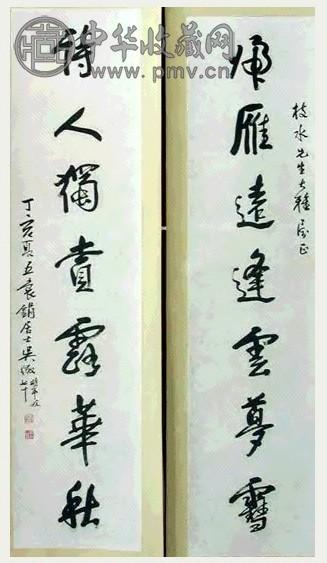 中华收藏网
www.pmv.cn
枝水先生大雅屬正
歸雁遠逢雲夢雪
詩人獨賞露華秋
丁亥夏五袌鋗居士吳徵時年七十